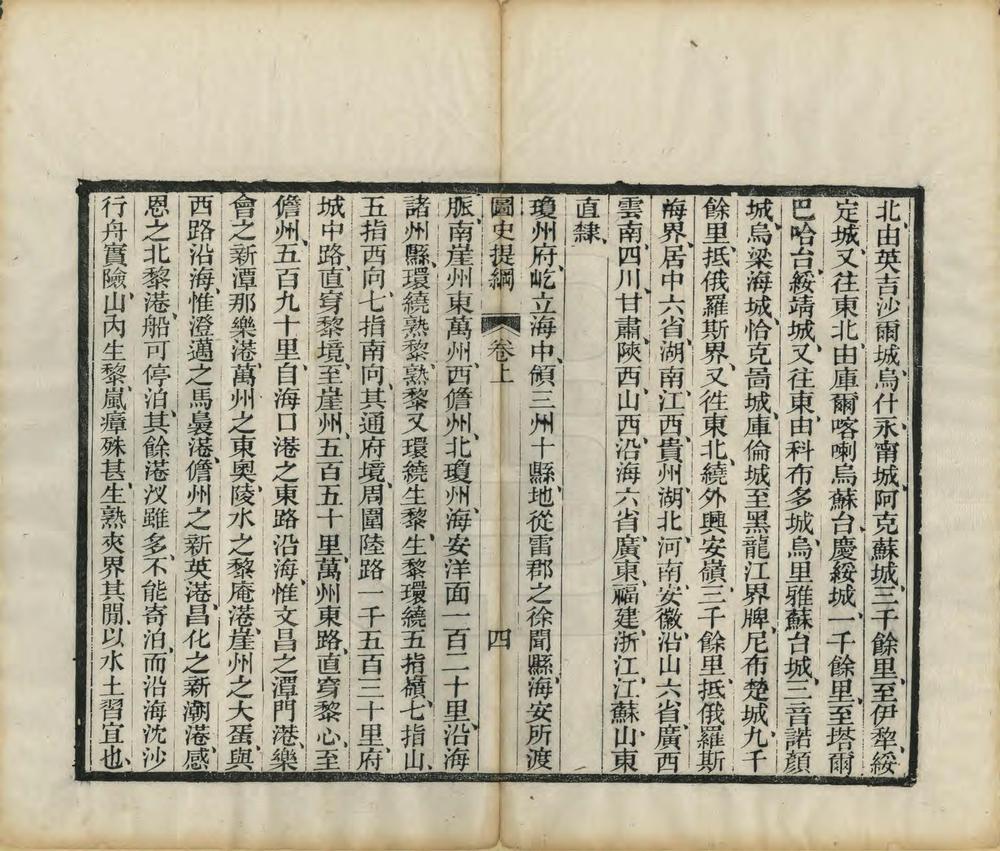 北、由英吉沙爾城、烏什永甯城、阿克蘇城、三千餘里、至伊犂、綏
定城、又往東北、由庫爾喀喇烏蘇台、慶綏城、一千餘里、至塔爾
巴哈台、綏靖城、又往東、由科布多城、烏里雅蘇台城、三音諾顏
城、烏梁海城、恰克啚城、庫倫城、至黑龍江界牌、尼布楚城、九千
餘里、抵俄羅斯界、又徃東北、繞外興安嶺、三千餘里、抵俄羅斯
海界、居中六省、湖南、江西、貴州、湖北、河南、安徽、沿山六省、廣西
雲南、四川、甘肅、陝西、山西、沿海六省、廣東、福建、浙江、江蘇、山東
直隸、
瓊州府、屹立海中、領三州十縣、地從雷郡之徐聞縣、海安所渡
圖史提綱
卷上
四
脈、南崖州、東萬州、西儋州、北瓊州、海安洋面一百二十里、沿海
諸州縣、環繞熟黎、熟黎又環繞生黎、生黎環繞五指嶺、七指山、
五指西向、七指南向、其通府境、周圍陸路一千五百三十里、府
城中路、直穿黎境、至崖州、五百五十里、萬州東路、直穿黎心、至
儋州、五百九十里、自海口港之東路沿海、惟文昌之潭門港、樂
會之新潭那樂港、萬州之東奧、陵水之黎庵港、崖州之大蛋、與
西路沿海、惟澄邁之馬裊港、儋州之新英港、昌化之新潮港、感
恩之北黎港、船可停泊、其餘港汊雖多、不能寄泊、而沿海沈沙
行舟實險、山內生黎、嵐瘴殊甚、生熟夾界其間、以水土習宜也、